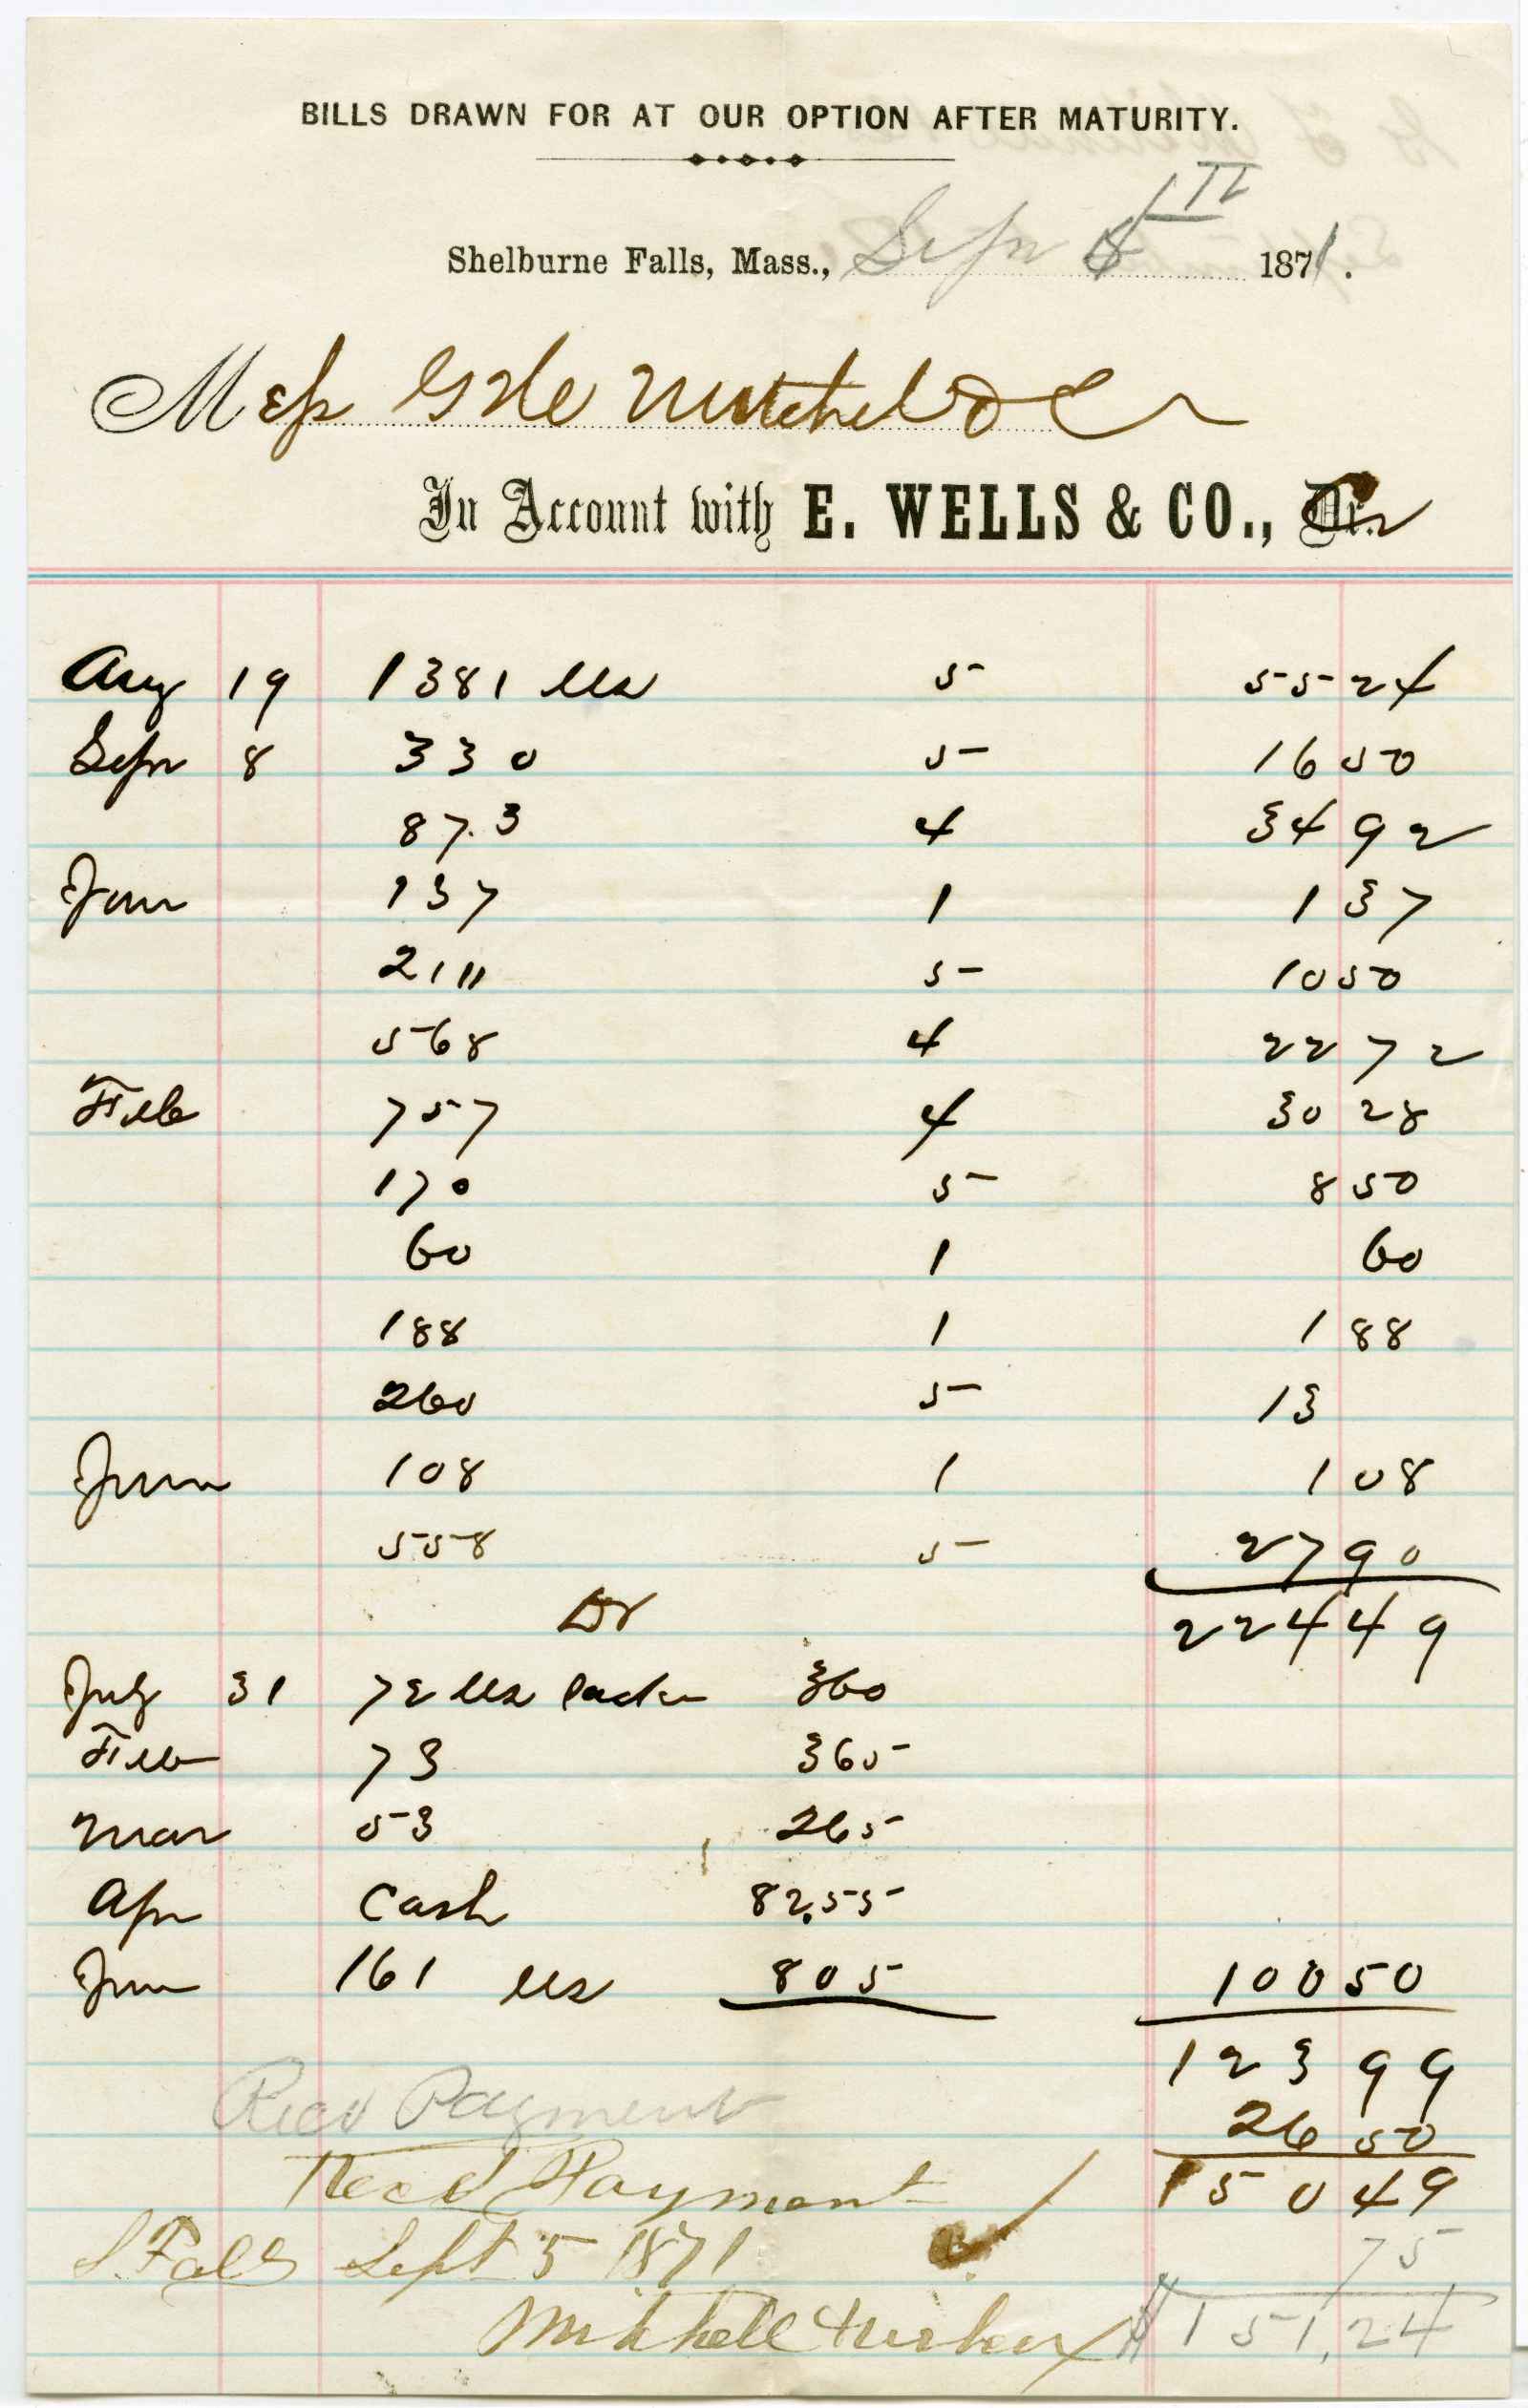 BILLS DRAWN FOR AT OUR OPTION AFTER MATURITY.
Shelburne Falls, Mass., Sepr 1871.
Mess G Mitchel & Co
In Account with E. WELLS & CO., Cr
Aug 19 1381 lbs 5 55 24
Sepr 8 330 5 16 50
873 4 34 92
Jan 137 1 1 37
211 5 10 50
568 4 22 72
Feb 757 4 30 28
170 5 8 50
60 1 60
188 1 1 88
260 5 13
June 108 1 1 08
558 5 27 90
Dr 224 49
July 31 72 lbs 360
Feb 73 365
Mar 53 265
Apr Cash 82.55
June 161 lbs 805 100 50
123 99
Recd Payment 26 50
Recd Payment 150 49
S. Falls Sept 5 1871 75
Mitchell $151.24